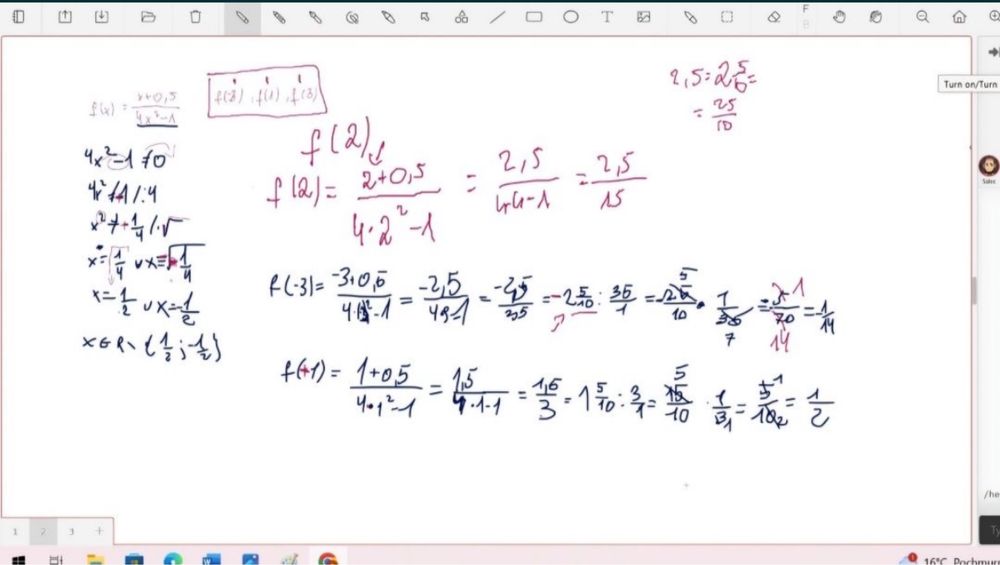 F
B
Turn on/Turn
f(x) = x+0,5 / 4x²-1
f(2), f(1), f(3)
2,5 = 2 5/10 =
= 25/10
4x²-1≠0
4x²≠1 /:4
x²≠1/4 /√
x=√1/4 ∨ x=-√1/4
x=1/2 ∨ x=-1/2
x∈R\{1/2;-1/2}
f(2)
f(2) = 2+0,5 / 4·2²-1 = 2,5 / 4·4-1 = 2,5 / 15
f(-3) = -3+0,5 / 4·3²-1 = -2,5 / 4·9-1 = -2,5 / 35 = -2 5/10 : 35/1 = -25/10 · 1/35 = -5/70 = -1/14
5
7
-1
14
f(1) = 1+0,5 / 4·1²-1 = 1,5 / 4·1-1 = 1,5 / 3 = 1 5/10 : 3/1 = 15/10 · 1/3 = 5/10 = 1/2
5
1
1
2
/he
Ty
1 2 3 +
16°C Pochmur